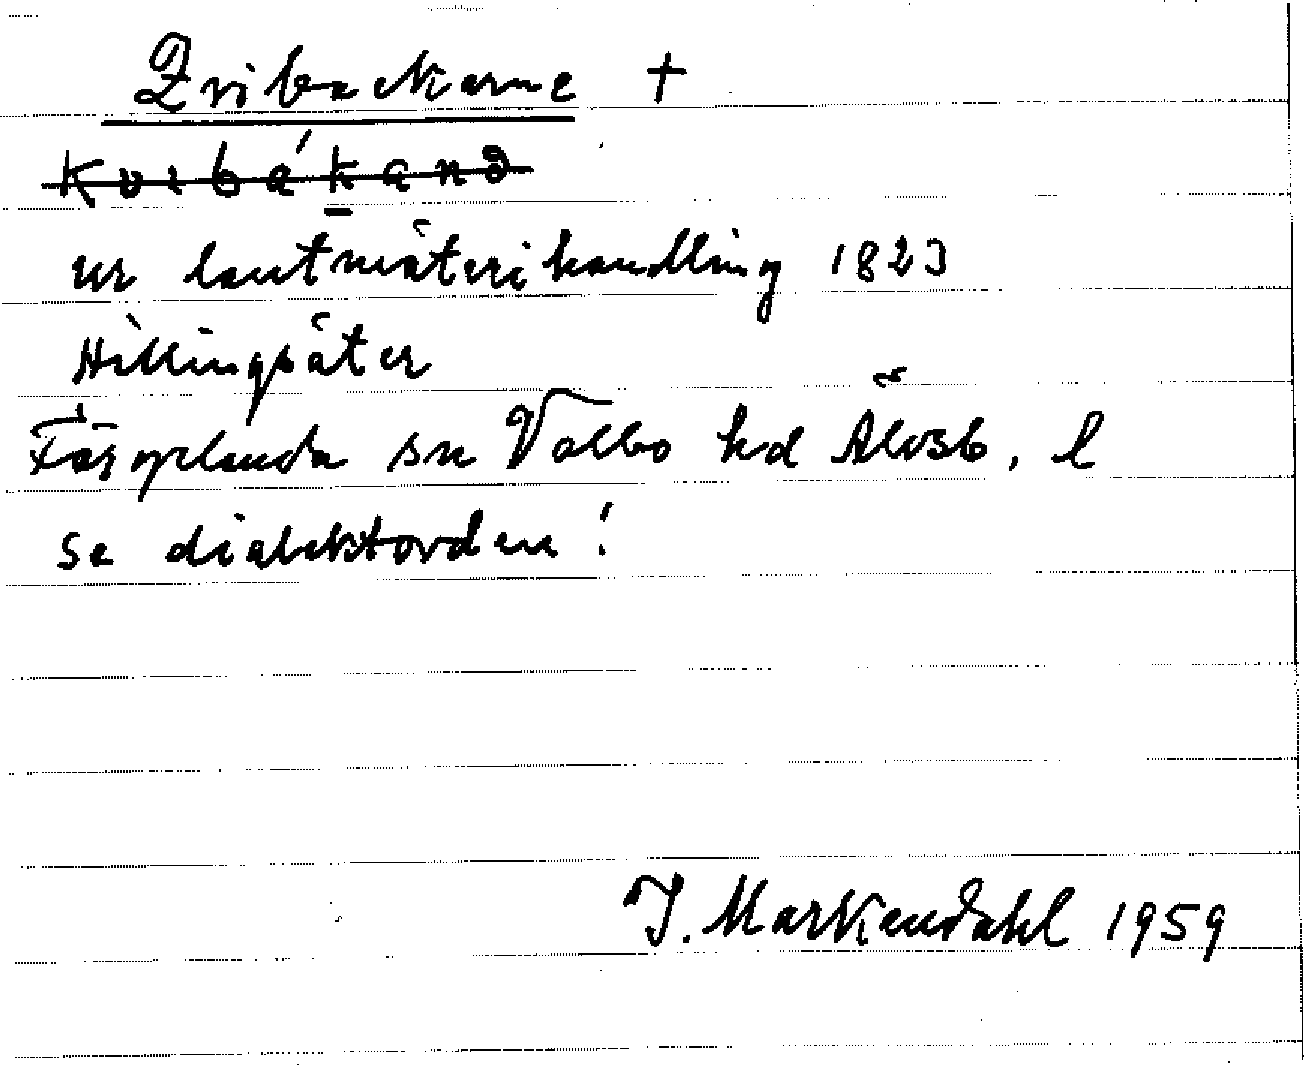 Qvibackarne +
kvıbákanə
ur lantmäterihandling 1823
Hillingsäter
Färgelanda sn Valbo hd Älvsb. l
se dialektorden!
J. Markendahl 1959